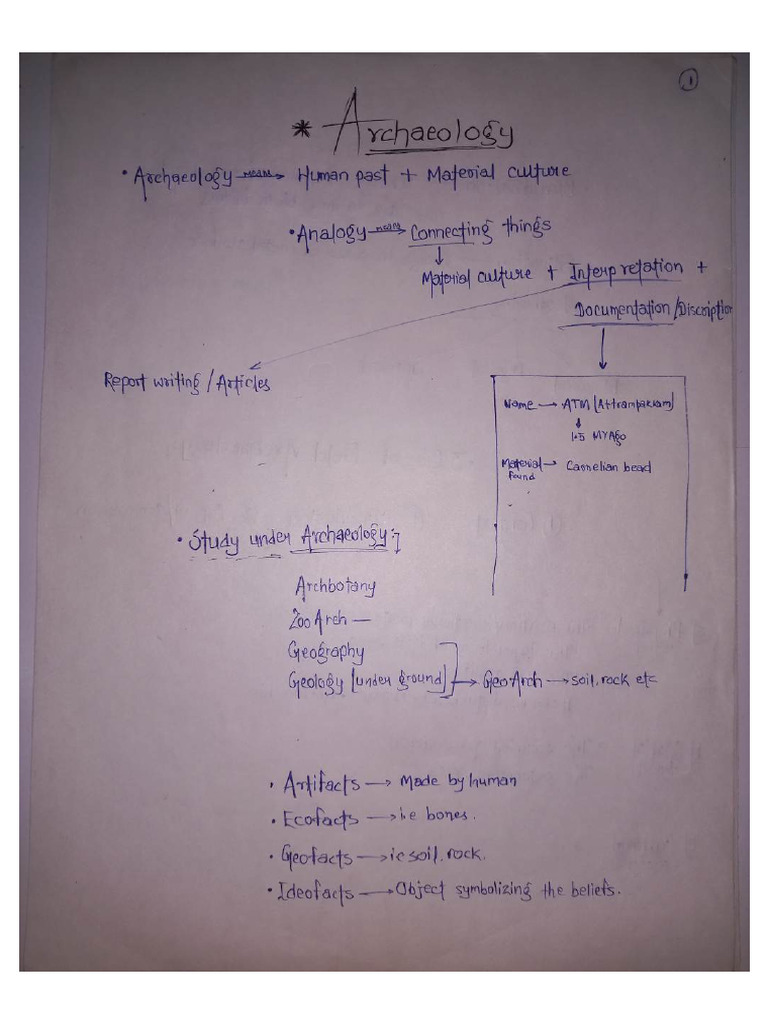 1
* Archaeology
• Archaeology means → Human past + Material culture
• Analogy means → Connecting things
↓
Material culture + Interpretation +
Documentation/Discription
↓
Report writing / Articles
Name → ATM [Attrampakkam]
↓
1.5 MYAgo
Material found → Carnelian bead
• Study under Archaeology :-
Archbotany
Zoo Arch —
Geography
Geology [under ground] → GeoArch → soil, rock etc
• Artifacts → Made by human
• Ecofacts → i.e bones.
• Geofacts → ie soil, rock.
• Ideofacts → Object symbolizing the beliefs.